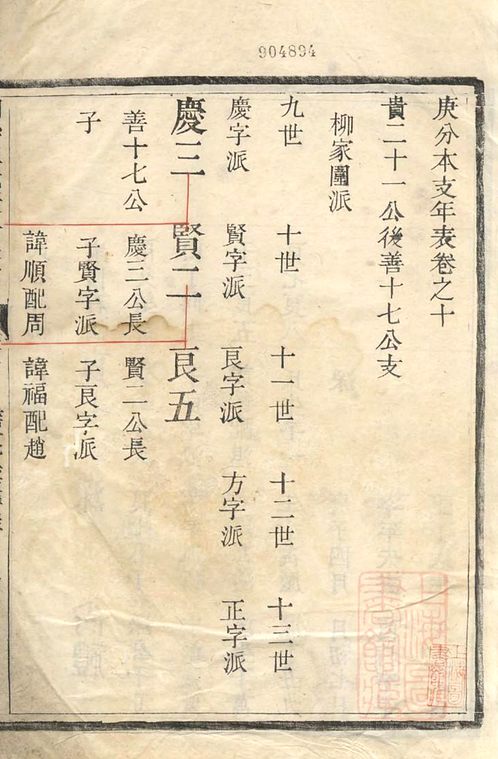 904894
庚分本支年表卷之十
貴二十一公後善十七公支
柳家圍派
九世 十世 十一世 十二世 十三世
慶字派 賢字派 良字派 方字派 正字派
慶三 賢二 良五
善十七公 慶二公長 賢二公長
子 子賢字派 子良字派
諱順配周 諱福配趙